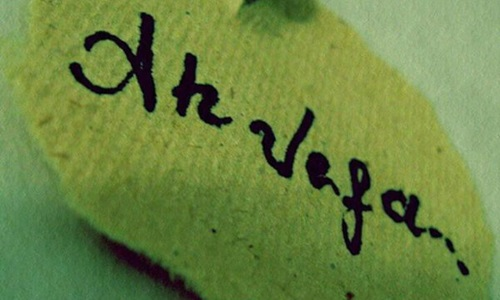 An Vefa...